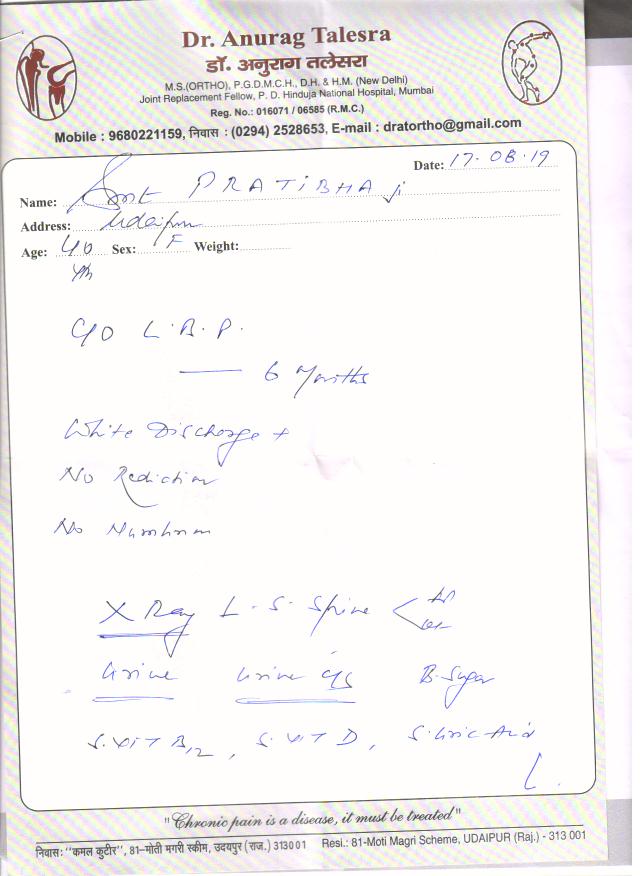 Dr. Anurag Talesra
डॉ. अनुराग तलेसरा
M.S.(ORTHO), P.G.D.M.C.H., D.H. & H.M. (New Delhi)
Joint Replacement Fellow, P. D. Hinduja National Hospital, Mumbai
Reg. No.: 016071 / 06585 (R.M.C.)
Mobile : 9680221159, निवास : (0294) 2528653, E-mail : dratortho@gmail.com
Date: 17.08.19
Name: Smt PRATIBHA Ji
Address: Udaipur
Age: 40 Sex: F Weight:
C/O L.B.P.
6 Months
White Discharge +
No Radiation
No Numbness
X Ray L.S. Spine < AP
Lat
Urine Urine C/S B. Sugar
S. VIT B12, S. VIT D, S. Uric Acid
"Chronic pain is a disease, it must be treated"
निवास: "कमल कुटीर", 81-मोती मगरी स्कीम, उदयपुर (राज.) 313001 Resi.: 81-Moti Magri Scheme, UDAIPUR (Raj.) - 313 001